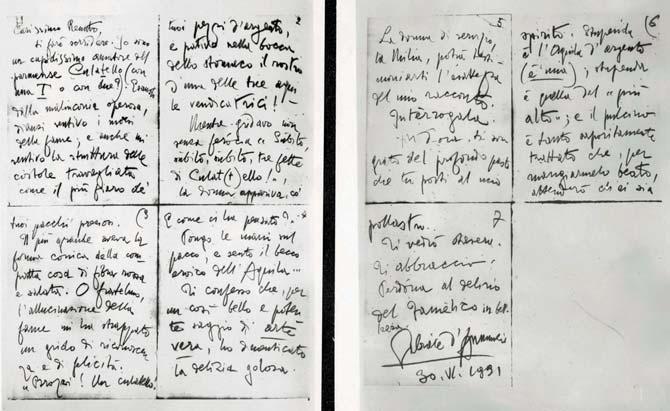 Carissimo Renato,
ti farò sorridere. Io sono
un cupidissimo amatore del
parmense Culatello (con
una T o con due?).
dalla malinconia operosa,
dianzi sentivo i morsi
della fame; e anche mi
sentivo la struttura delle
costole travagliata
come il più fiero de'
2
tuoi pezzi d'argento,
e pativo nella bocca
dello stomaco il rostro
d'una delle tue aqui
le vendicatrici! –
Mentre gridavo non
senza ferocia "Subito,
subito, subito, tre fette
di Culat(t)ello!",
la donna appariva, co'
3
tuoi pacchi preziosi.
Il più grande aveva la
forma conica della com
patta cosa di fibra rossa
e salata. O fratelmo,
l'allucinazione della
fame mi ha strappato
un grido di riconoscen
za e di felicità.
"Brozzi! Un culatello.
E come ci ha pensato?"
Pongo le mani sul
pacco, e sento il becco
eroico dell'Aquila...
Ti confesso che, per
un così bello e poten
te saggio di arte
vera, ho dimenticato
la delizia golosa.
5
La donna di servizio,
la Milia, potrà testi
moniarti l'esattezza
del mio racconto.
Interrogala.
ti son
grato del profondo
che tu porti al mio
6
spirito. Stupenda
è l'Aquila d'argento
(è mia); stupenda
è quella del "più
alto"; e il pulcino
è tanto saporitamente
trattato che, per
mangiarmelo
ci sia
7
pollastro...
Ti vedrò stasera.
Ti abbraccio.
Perdona al delirio
del famèlico in
Gabriele d'Annunzio
30. VI. 1931